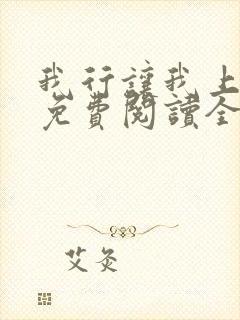 我行讓我上
免費閱讀全
艾灸